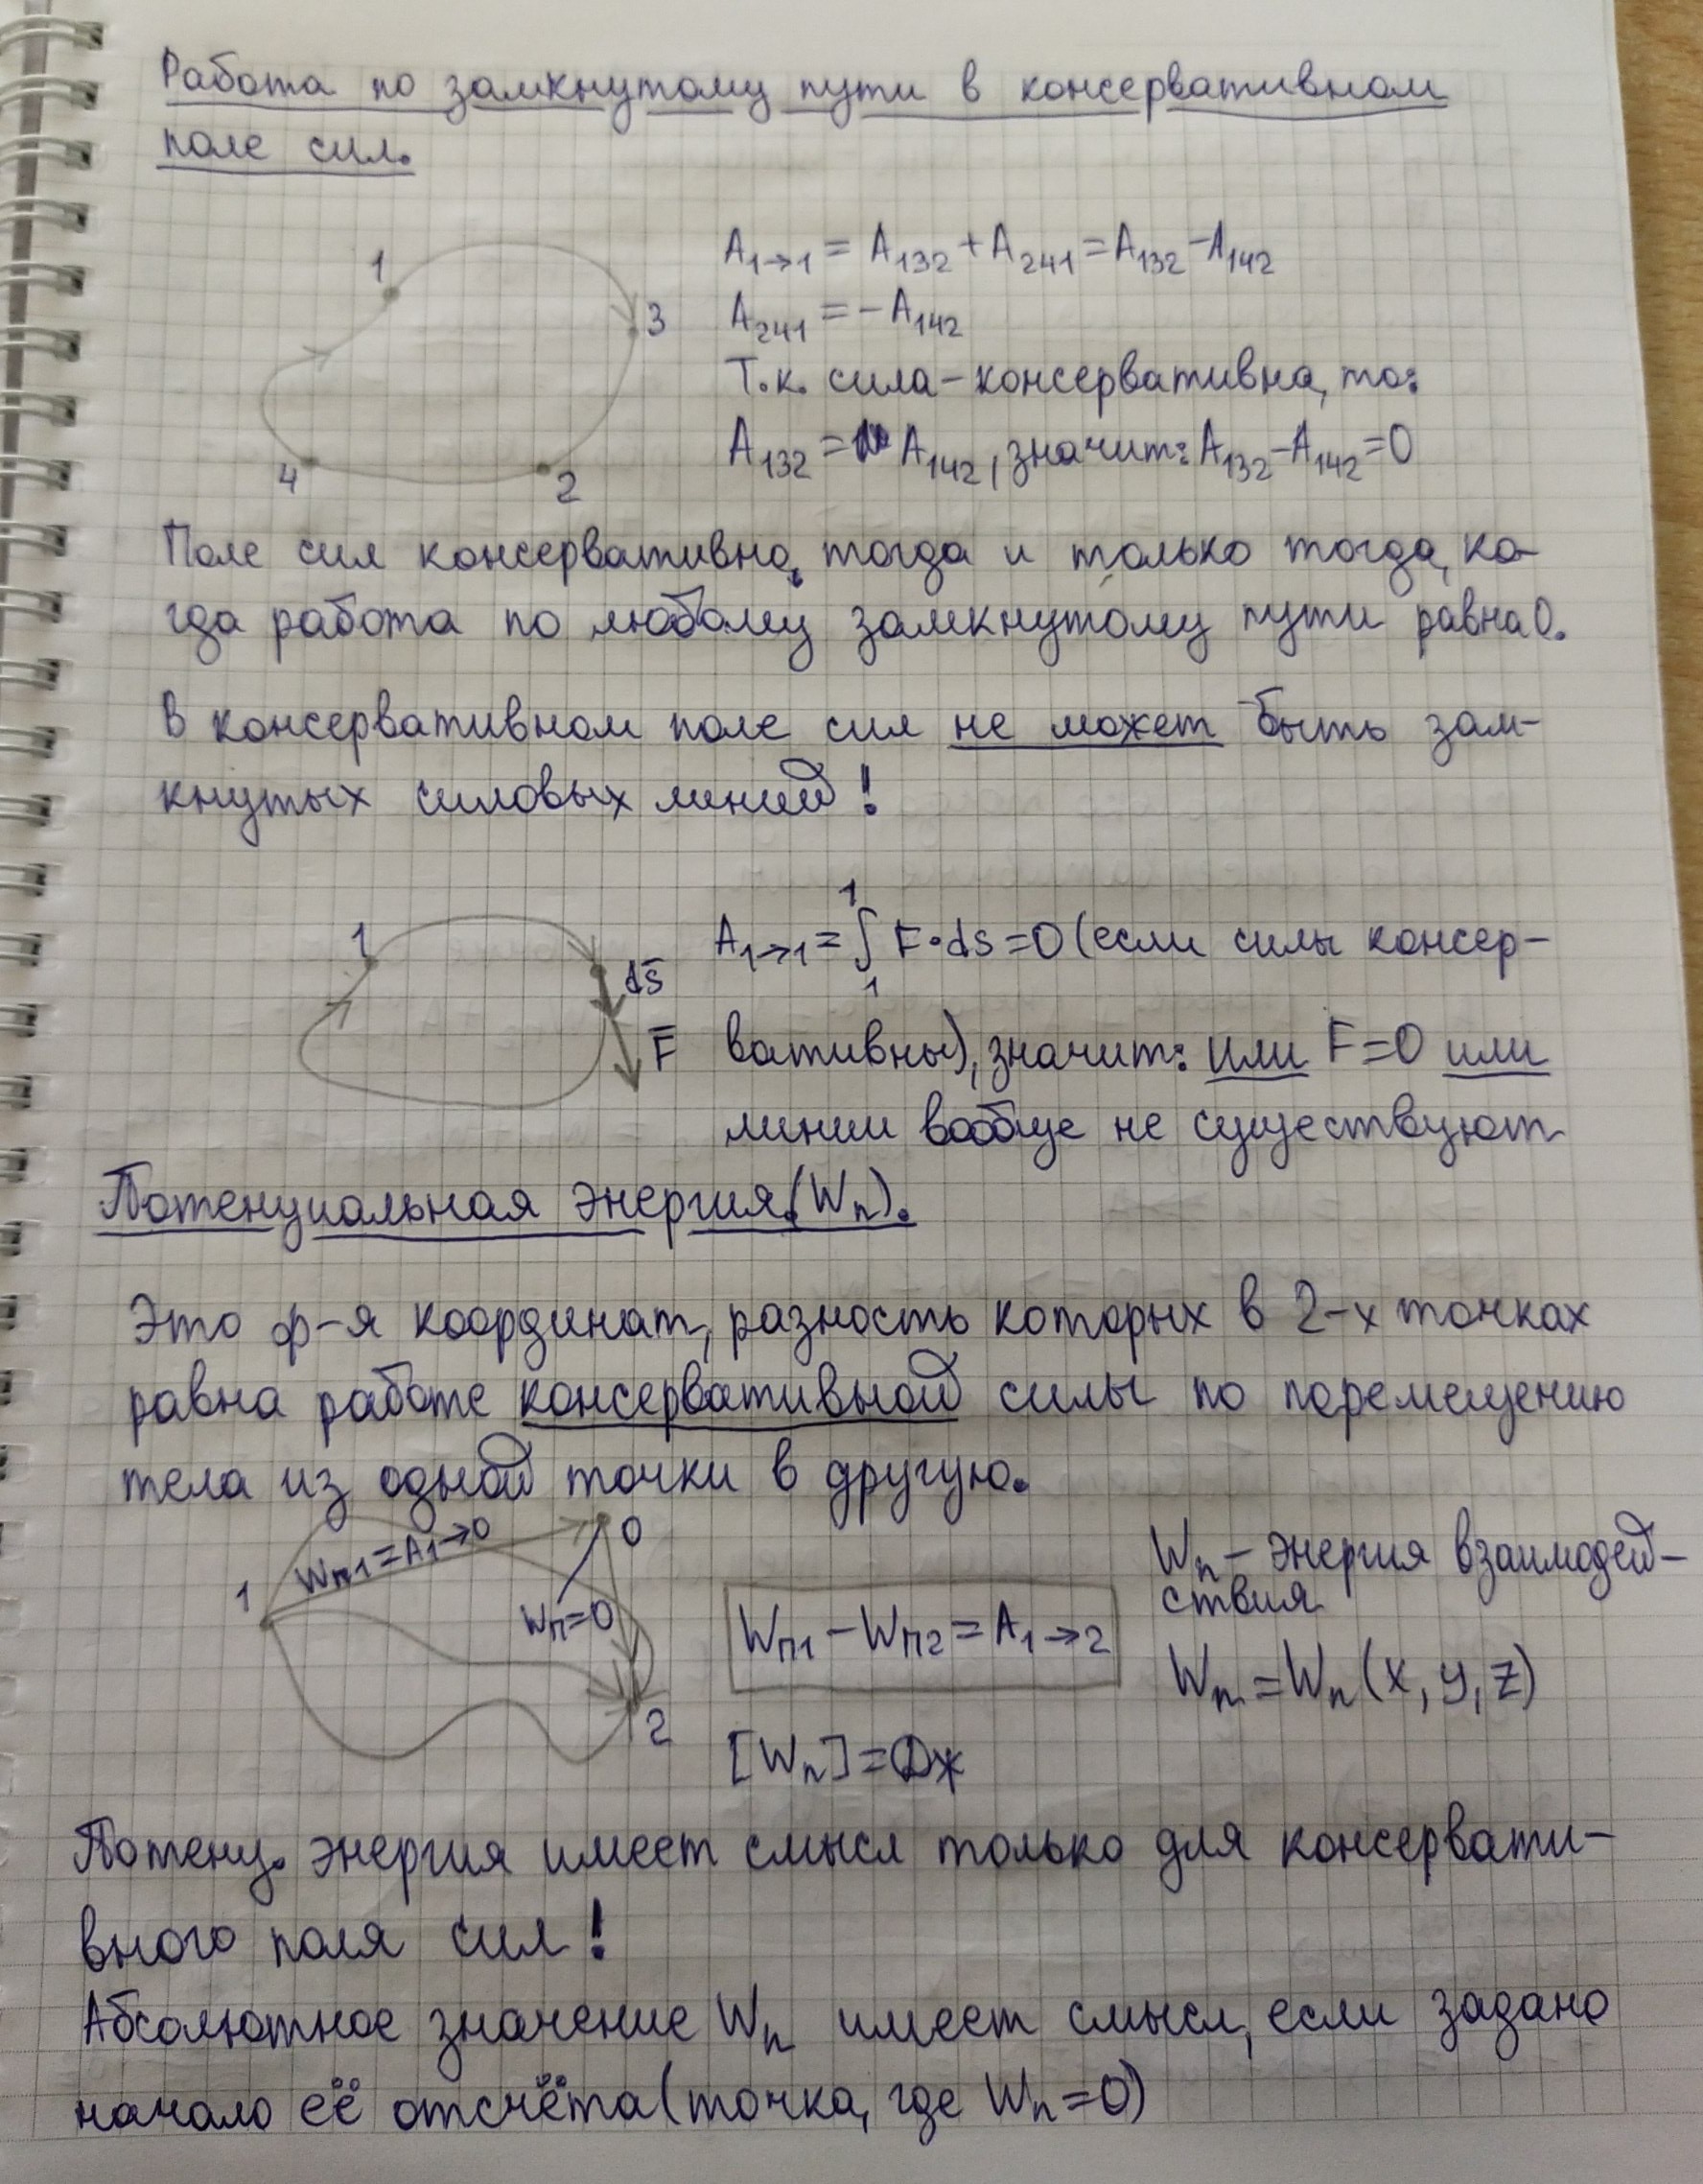 Работа по замкнутому пути в консервативном
поле сил.
1
3
4
2
A₁→₁ = A₁₃₂ + A₂₄₁ = A₁₃₂ - A₁₄₂
A₂₄₁ = - A₁₄₂
Т.к. сила - консервативна, то:
A₁₃₂ = A₁₄₂, значит: A₁₃₂ - A₁₄₂ = 0
Поле сил консервативно, тогда и только тогда, ко-
гда работа по любому замкнутому пути равна 0.
В консервативном поле сил не может быть зам-
кнутых силовых линий!
1
ds̄
F̄
A₁→₁ = ∫₁¹ F·ds = 0 (если силы консер-
вативны), значит: или F=0 или
линии вообще не существуют
Потенциальная энергия.(Wп).
Это ф-я координат, разность которых в 2-х точках
равна работе консервативной силы по перемещению
тела из одной точки в другую.
1
Wп1 = A₁→₀
0
Wп=0
2
Wп1 - Wп2 = A₁→₂
[Wп] = Дж
Wп - энергия взаимодей-
ствия
Wп = Wп (x, y, z)
Потенц. энергия имеет смысл только для консервати-
вного поля сил!
Абсолютное значение Wп имеет смысл, если задано
начало её отсчёта (точка, где Wп=0)